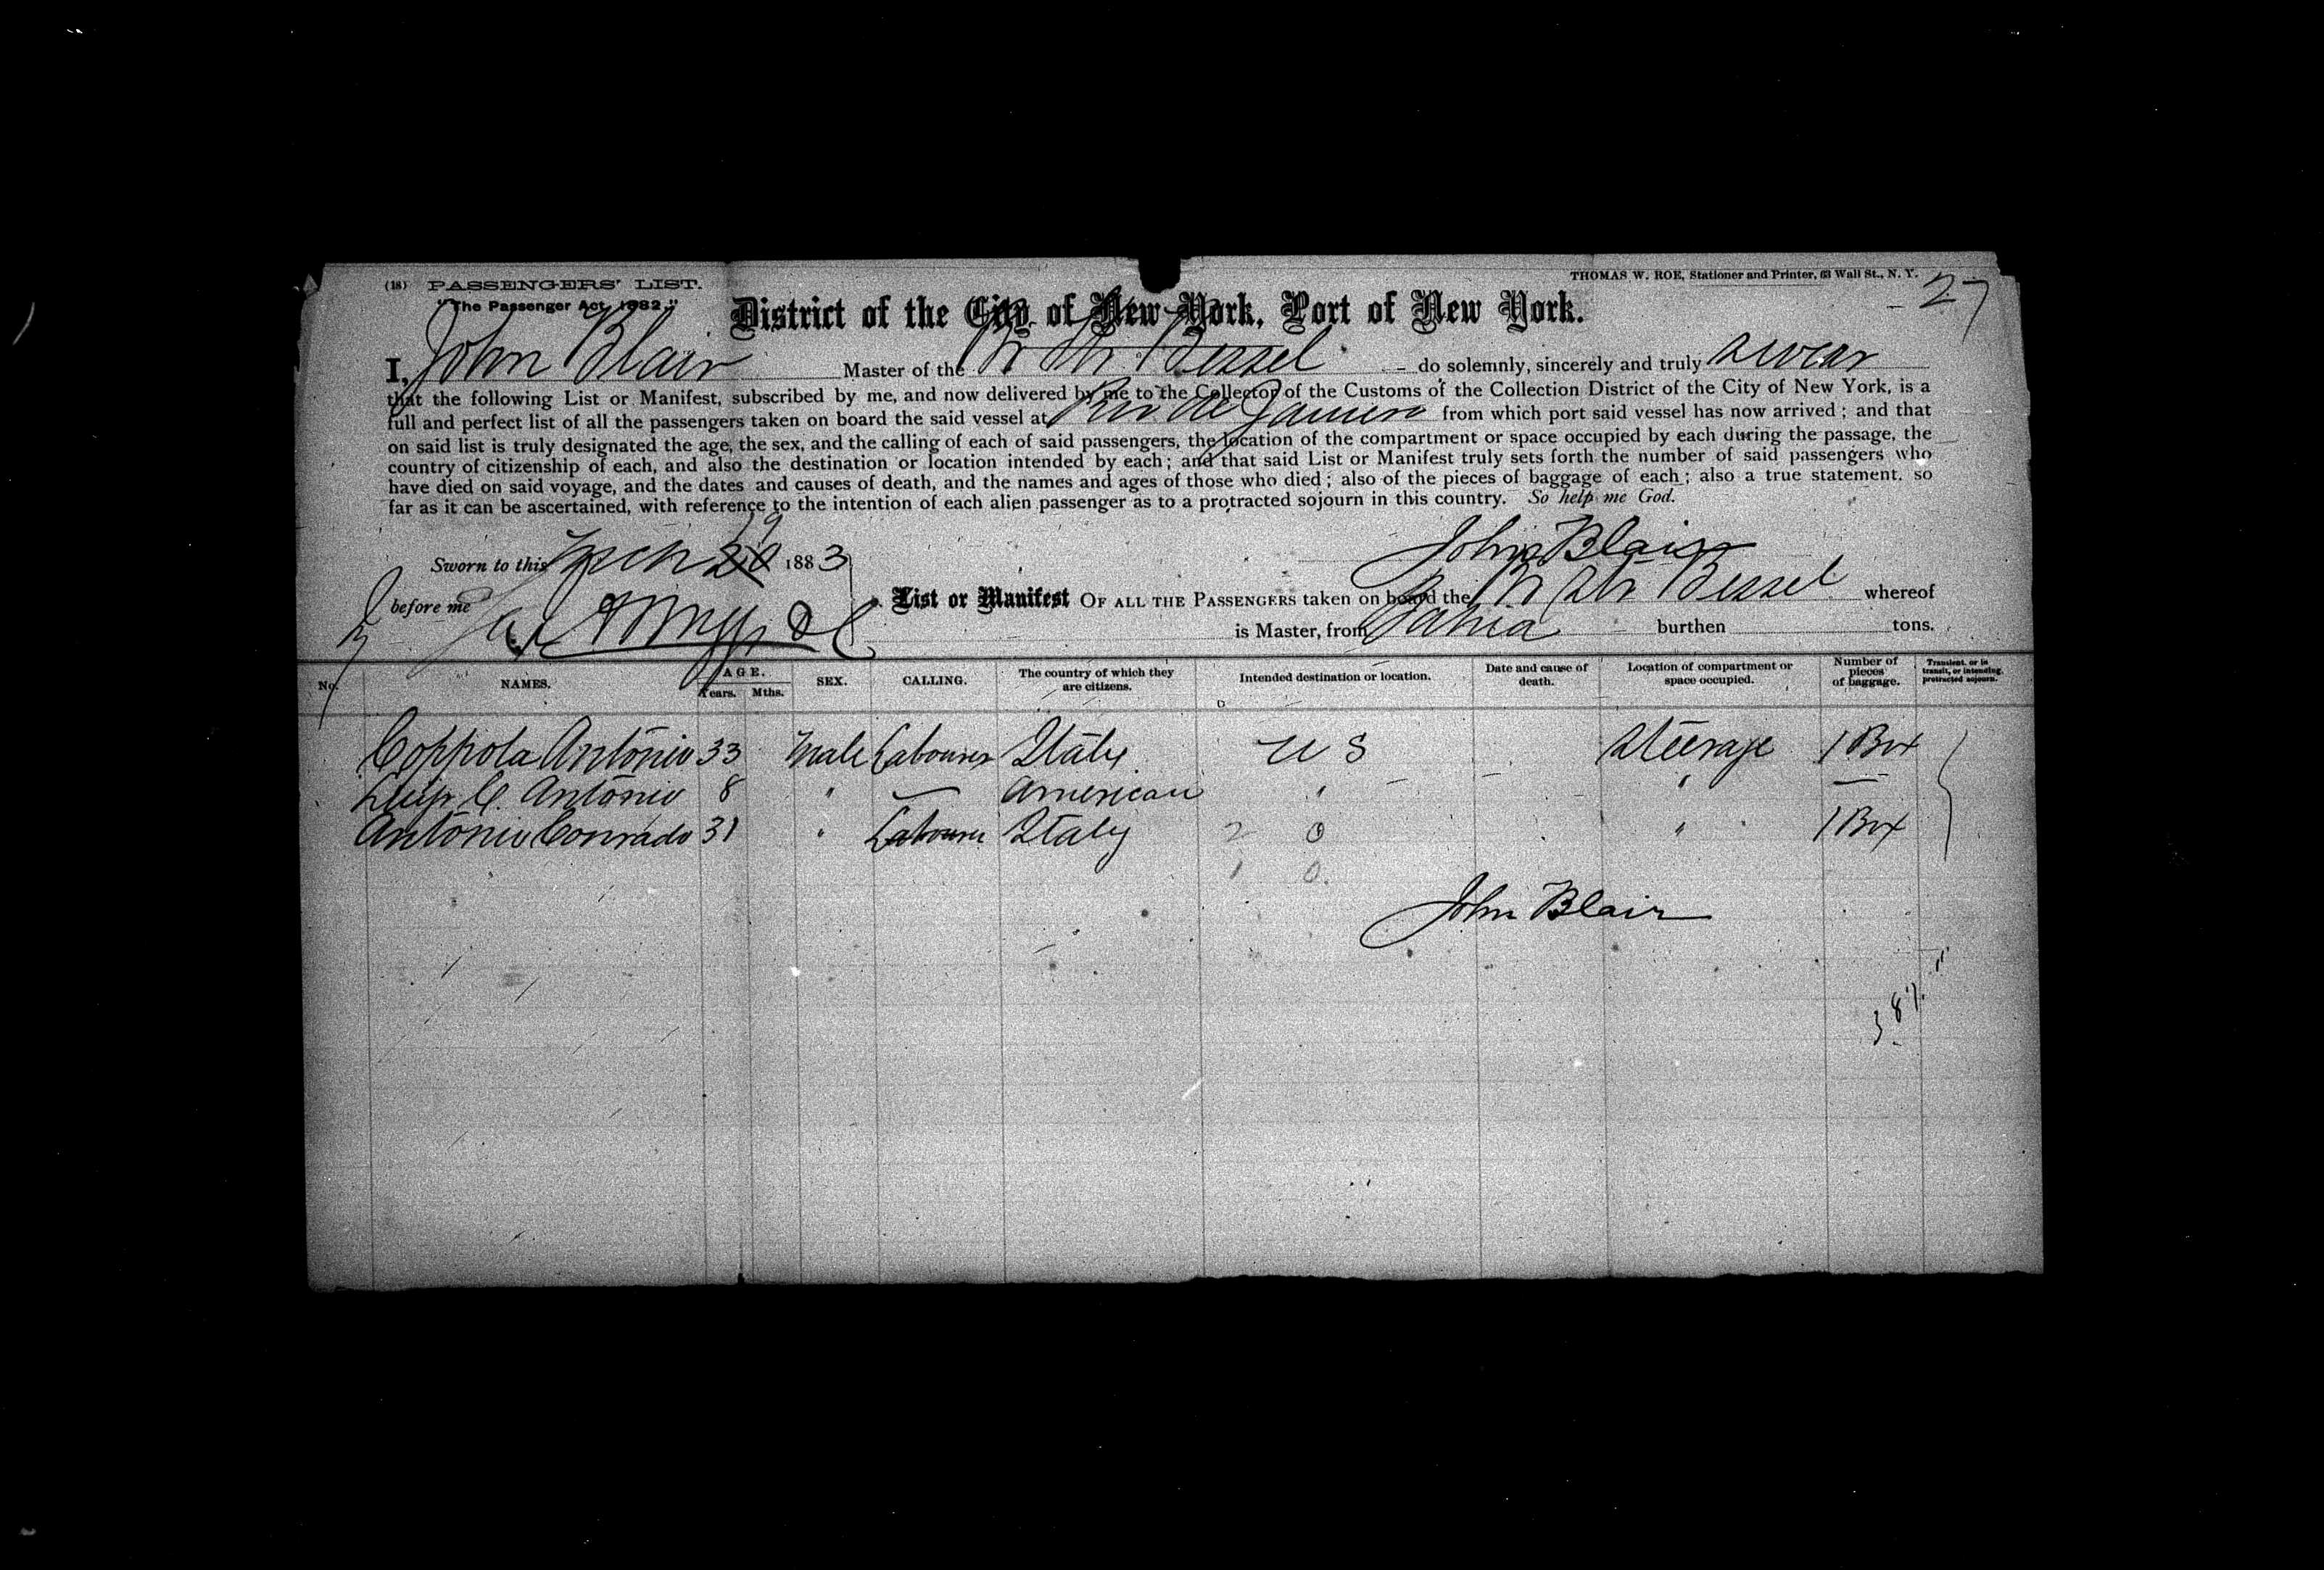 (18) PASSENGERS' LIST. THOMAS W. ROE, Stationer and Printer, 63 Wall St., N. Y.
"The Passenger Act, 1882." 27
District of the City of New York, Port of New York.
I, John Blair Master of the Bessel do solemnly, sincerely and truly swear
that the following List or Manifest, subscribed by me, and now delivered by me to the Collector of the Customs of the Collection District of the City of New York, is a
full and perfect list of all the passengers taken on board the said vessel at Rio de Janeiro from which port said vessel has now arrived; and that
on said list is truly designated the age, the sex, and the calling of each of said passengers, the location of the compartment or space occupied by each during the passage, the
country of citizenship of each, and also the destination or location intended by each; and that said List or Manifest truly sets forth the number of said passengers who
have died on said voyage, and the dates and causes of death, and the names and ages of those who died; also of the pieces of baggage of each; also a true statement, so
far as it can be ascertained, with reference to the intention of each alien passenger as to a protracted sojourn in this country. So help me God.
Sworn to this 19 1883 John Blair
before me List or Manifest OF ALL THE PASSENGERS taken on board the Bessel whereof
is Master, from Bahia burthen tons.
No. NAMES. AGE. Years. Mths. SEX. CALLING. The country of which they are citizens. Intended destination or location. Date and cause of death. Location of compartment or space occupied. Number of pieces of baggage. Transient, or in transit, or intending protracted sojourn.
Coppola Antonio 33 Male Labourer Italy U S Steerage 1 Box
C. Antonio 8 " — American " " —
Antonio Conrado 31 " Labourer Italy 2 0 " 1 Box
1 0.
John Blair